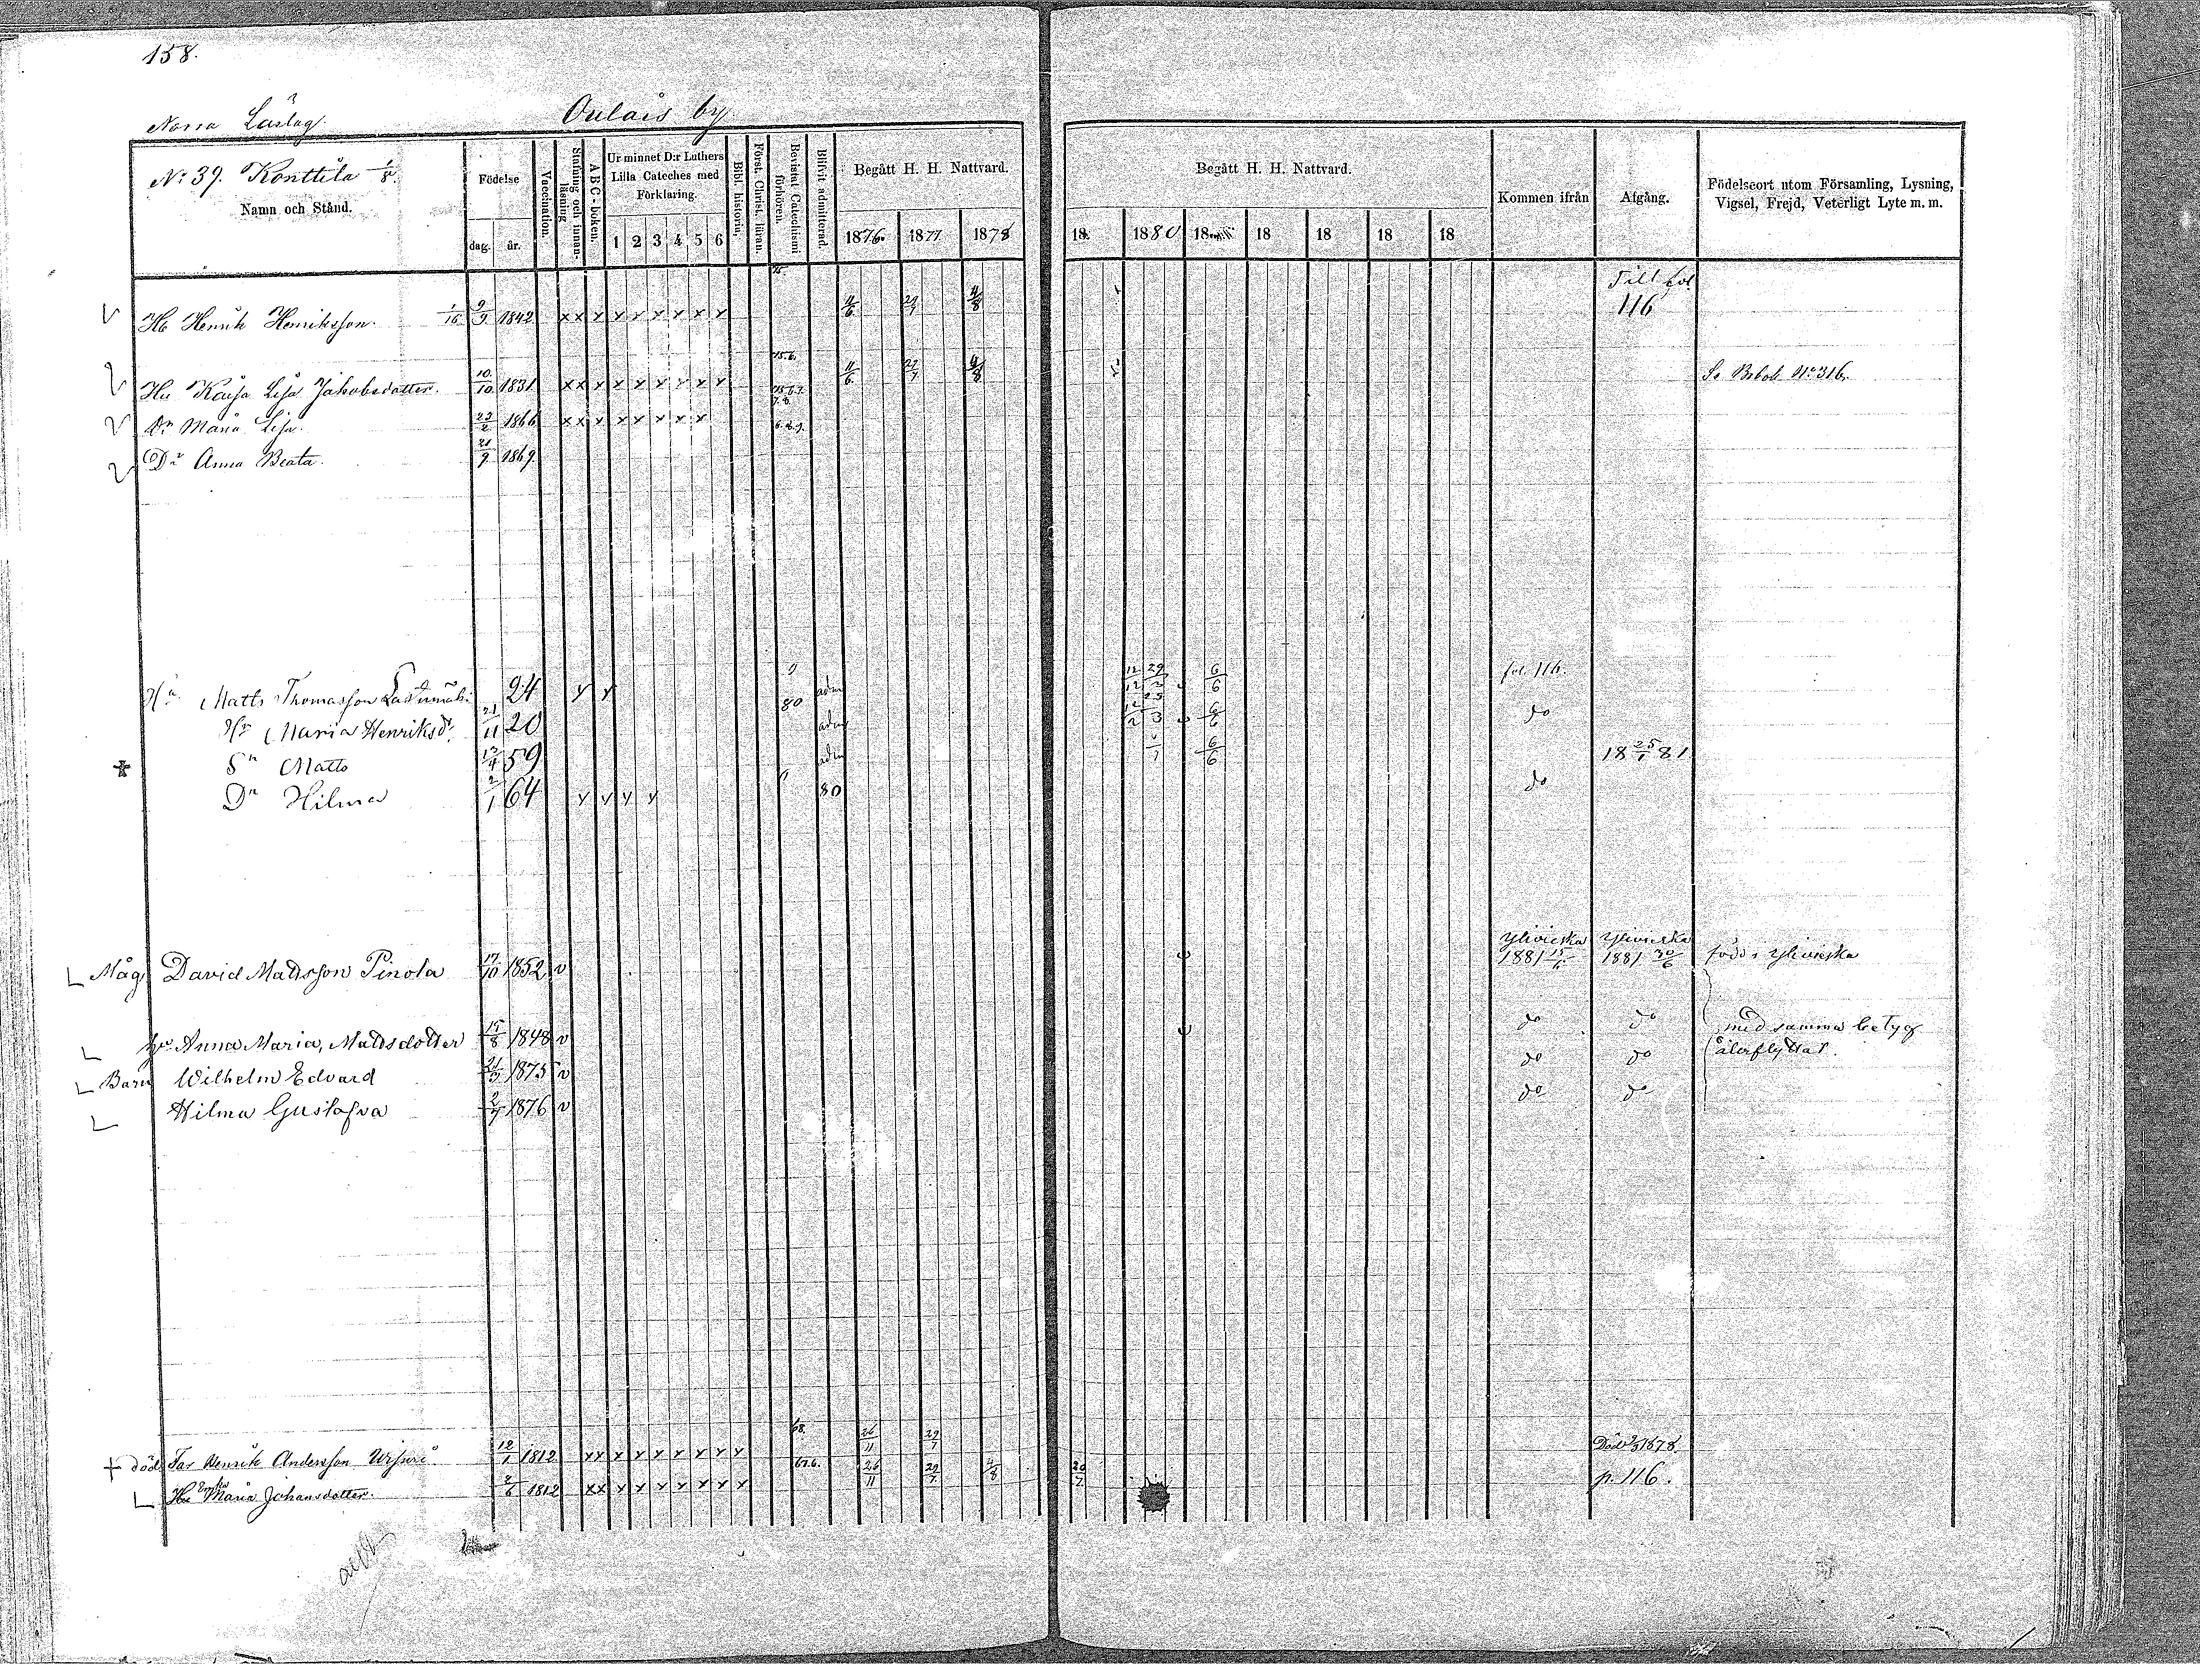 158.
Norra Läslag. Oulais by
No: 39. Konttila 1/8.
Namn och Stånd.
Födelse
dag. år.
Vaccination.
Stafning och innanläsning
ABC-boken.
Ur minnet D:r Luthers Lilla Cateches med Förklaring.
1 2 3 4 5 6
Bibl. historia,
Förstt. Christ. läran.
Bevistat Catechismi förhören.
Blifvit admitterad.
Begått H. H. Nattvard.
1876. 1877 1878
Begått H. H. Nattvard.
18 1880 18 18 18 18 18
Kommen ifrån
Afgång.
Födelseort utom Församling, Lysning, Vigsel, Frejd, Veterligt Lyte m. m.
Till fol.
Hb Henrik Henriksson. 1/16 9/9 1842 x x x x x x x x x 11/6 29/7 4/8 116
Hu Kaisa Lisa Jakobsdotter. 10/10 1831 x x x x x x x x x 11/6 29/7 4/8 Se Brbok No 316.
Dr Maria Lisa. 23/2 1866 x x x x x x x x
Dr Anna Beata. 21/9 1869.
Matts Thomasson 24 adm 6/6 fol. 116.
Maria Henriksdr. 21/11 20 80 adm 6/6 do
Sn Matts 59 adm 6/6 18 25/1 81
Dr Hilma 2/1 64 80 do
Måg David Mattsson Pinola 17/10 1852 v Ylivieska 1881 Ylivieska 1881 30/6 född i Ylivieska
Anna Maria, Mattsdotter 15/8 1848 v do do med samma betyg
Barn Wilhelm Edvard 1875 v do do återflyttat.
Hilma Gustafva 2/7 1876 v do do
död Far Henrik Andersson 12/1 1812 x x x x x x x x x 68. 26/11 29/7 Död 1878.
Maria Johansdotter. 2/6 1812 x x x x x x x x x 67.6. 26/11 29/7 4/8 20/7 p. 116.